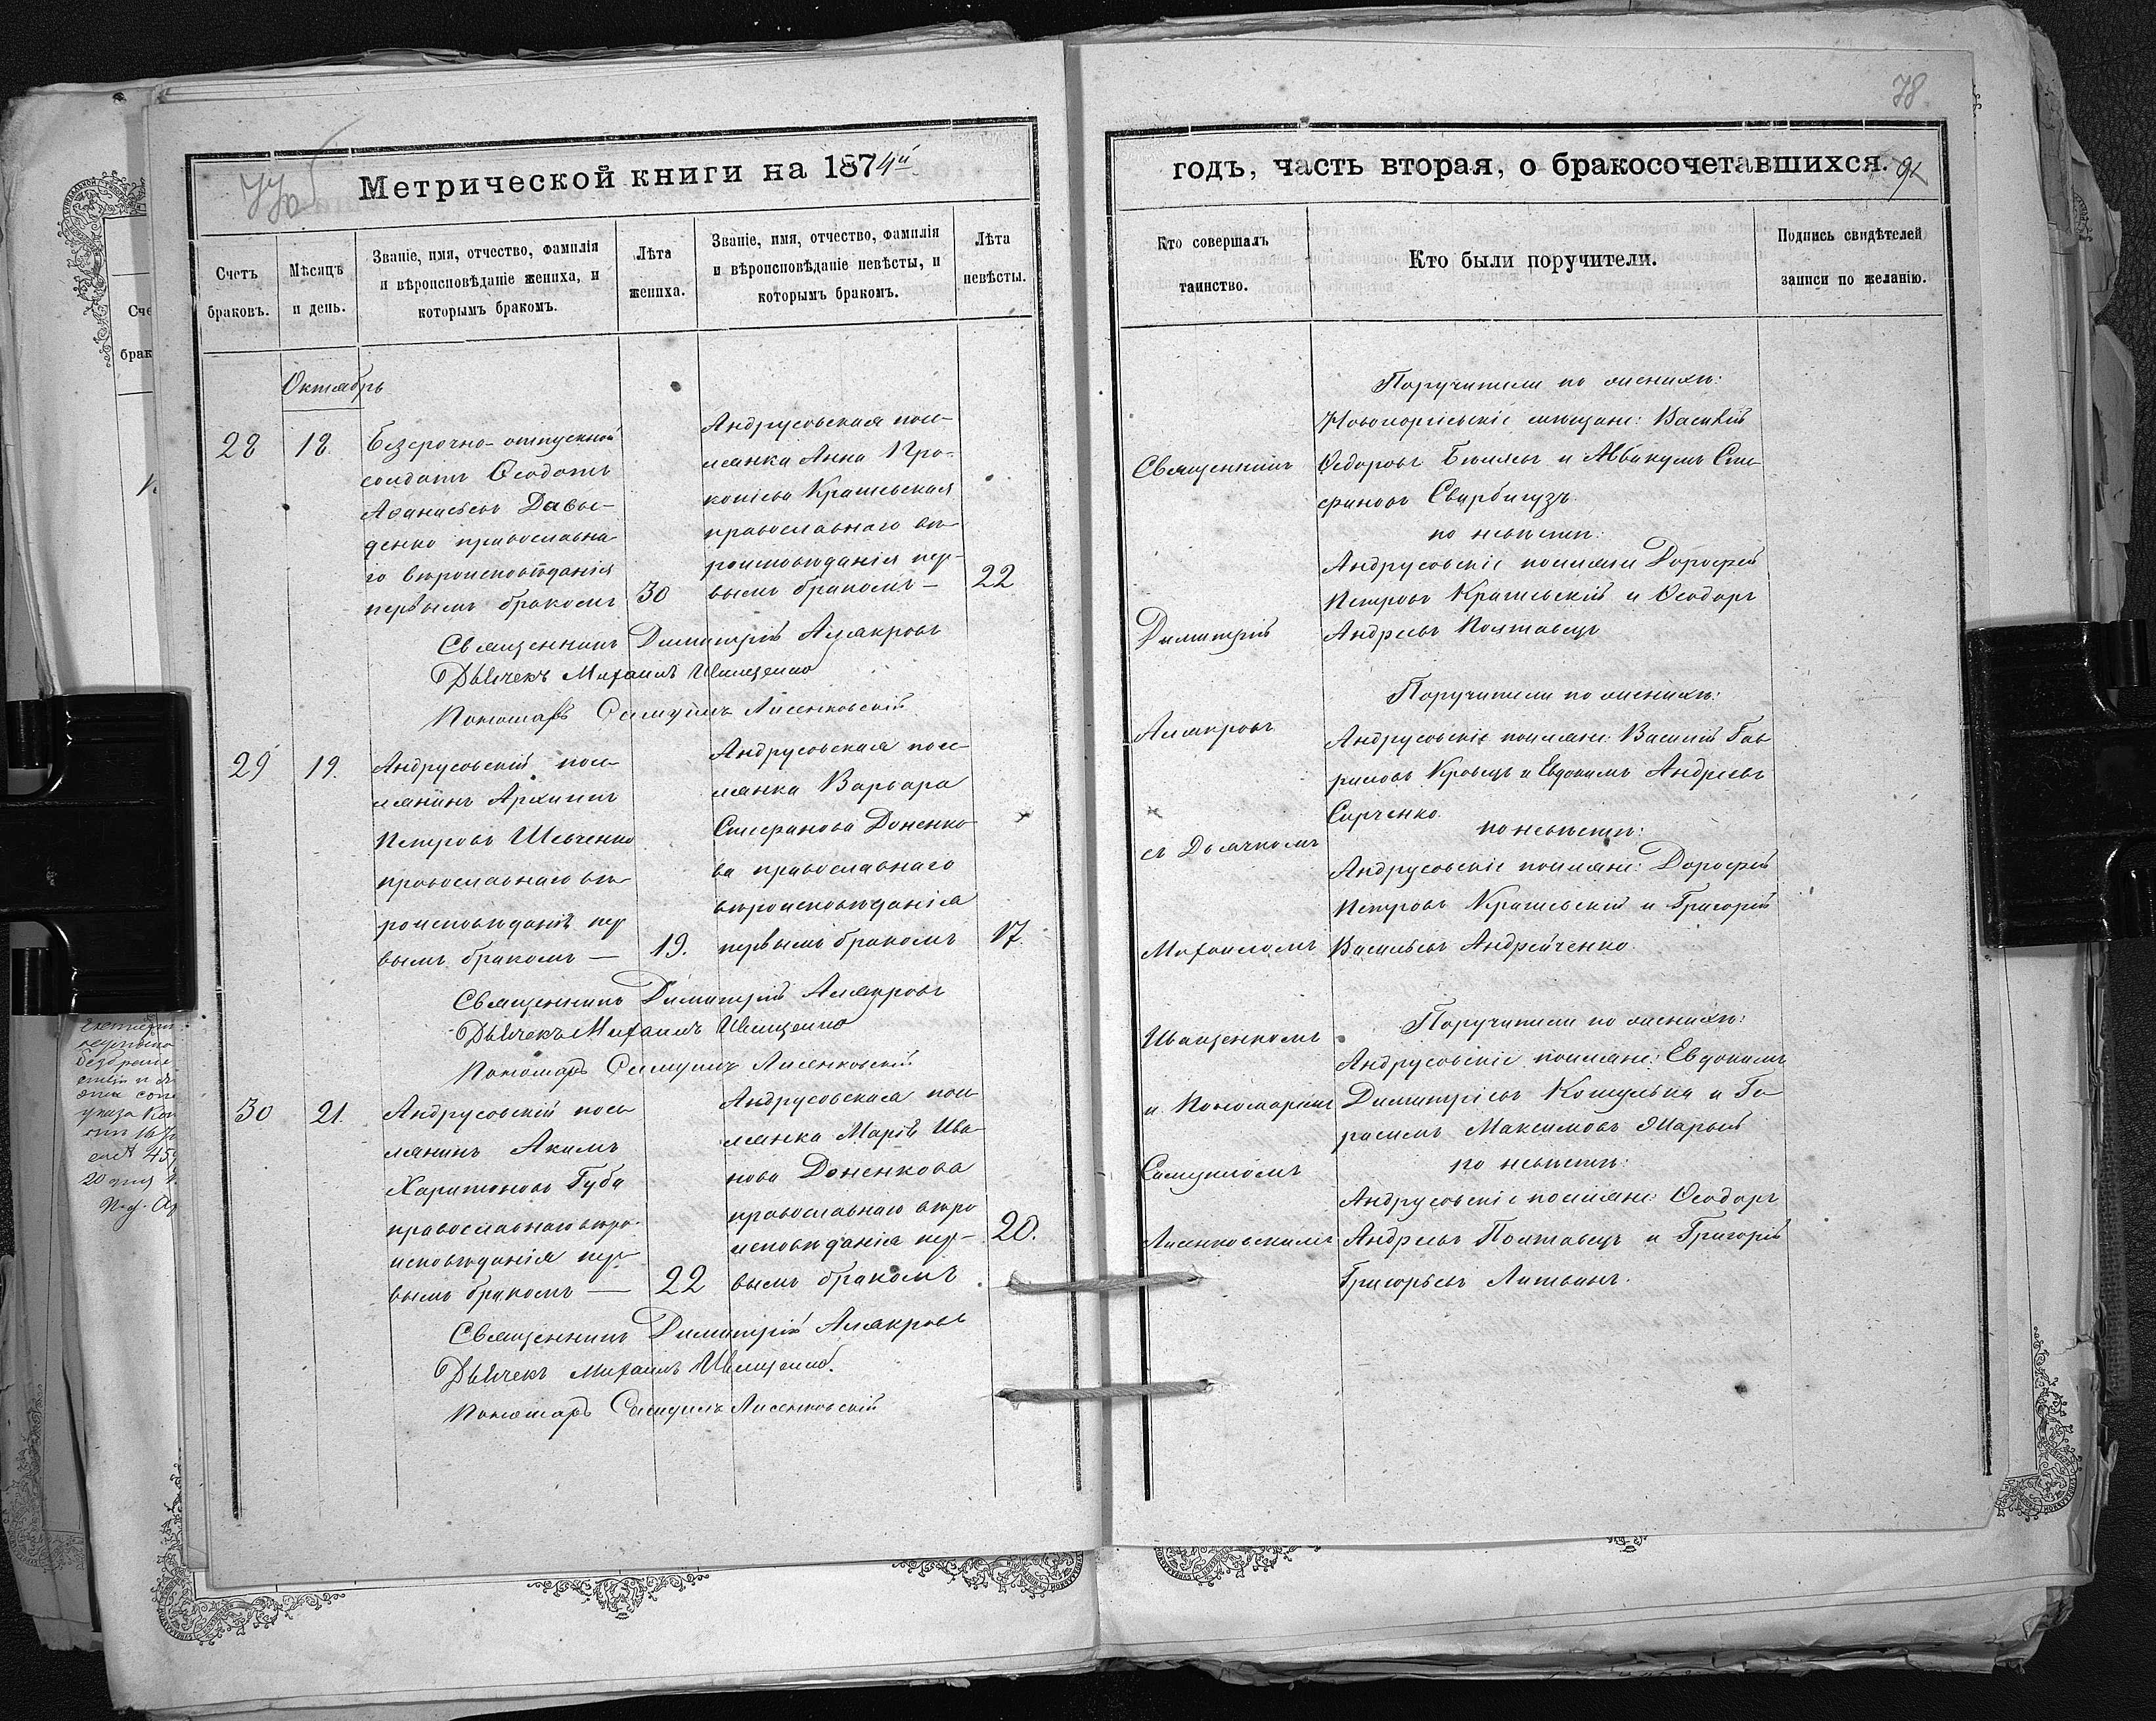 78
Метрической книги на 1874й
Счетъ браковъ.
Мѣсяцъ и день.
Званіе, имя, отчество, фамилія
и вѣроисповѣданіе жениха, и
которымъ бракомъ.
Лѣта жениха.
Званіе, имя, отчество, фамилія
и вѣроисповѣданіе невѣсты, и
которымъ бракомъ.
Лѣта невѣсты.
Октябрь
28
18
Безсрочно-отпускной
солдатъ Ѳеодотъ
Аѳанасьевъ Давы-
денко православна
го вѣроисповѣданія
первымъ бракомъ
30
Андрусовская посе-
лянка Анна Про-
копіева Крашевская
православнаго вѣ-
роисповѣданія пер-
вымъ бракомъ —
22
Священникъ Димитрій
Дьячекъ Михаилъ Иващенко
Пономарь Самуилъ Лисенковскій
29
19.
Андрусовскій посе-
лянинъ Архипъ
Петровъ Шевченко
православнаго вѣ-
роисповѣданія пер
вымъ бракомъ —
19.
Андрусовская посе-
лянка Варвара
Стефанова Доненко
ва православнаго
вѣроисповѣданія
первымъ бракомъ
17.
Священникъ Димитрій
Дьячекъ Михаилъ Иващенко
Пономарь Самуилъ Лисенковскій
30
21.
Андрусовскій посе
лянинъ Акимъ
Харитоновъ Губа
православнаго вѣро-
исповѣданія пер-
вымъ бракомъ —
22
Андрусовская посе
лянка Марія Ива-
нова Доненкова
православнаго вѣро
исповѣданія пер-
вымъ бракомъ
20.
Священникъ Димитрій
Дьячекъ Михаилъ Иващенко.
Пономарь Самуилъ Лисенковскій
годъ, часть вторая, о бракосочетавшихся.
Кто совершалъ
таинство.
Кто были поручители.
Подпись свидѣтелей
записи по желанію.
Священникъ
Димитрій
съ Дьячкомъ
Михаиломъ
Иващенкомъ
и Пономаремъ
Самуиломъ
Лисенковскимъ
Поручители по женихѣ:
мѣщане: Василій
Ѳедоровъ и Аввакумъ Сте-
фановъ
по невѣстѣ:
Андрусовскіе поселяне Дорофей
Петровъ Крашевскій и Ѳеодоръ
Андреевъ Полтавецъ
Поручители по женихѣ:
Андрусовскіе поселяне: Василій Гав
риловъ Кравецъ и Евдокимъ Андреевъ
Сорченко.
по невѣстѣ:
Андрусовскіе поселяне: Дорофей
Петровъ Крашевскій и Григорій
Васильевъ Андрейченко.
Поручители по женихѣ:
Андрусовскіе поселяне: Евдокимъ
Димитріевъ Кошулька и Ге
расимъ Максимовъ
по невѣстѣ:
Андрусовскіе поселяне: Ѳеодоръ
Андреевъ Полтавецъ и Григорій
Григорьевъ Литвинъ.